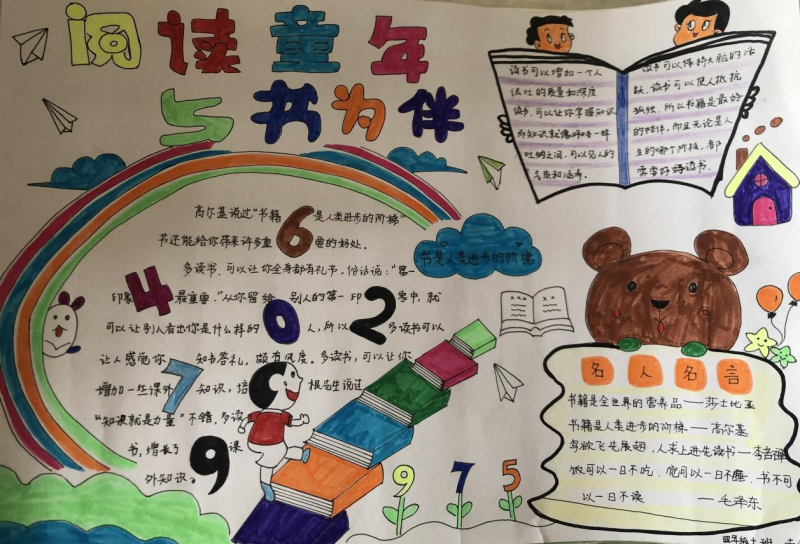 阅读童年
与书为伴
读书可以增加一个人
谈吐的质量和深度
读书,可以让你掌握知识
而知识就像呼吸一样
吐纳之间,可以见人的
气质和涵养。
读书可以保持大脑的活
跃,读书可以使人抵抗
孤独,所以书籍是最好
的陪伴,而且无论是人
生的哪个阶段,都
需要好好读书。
高尔基说过"书籍6是人类进步的阶梯"
书还能给你带来许多重要的好处。
多读书,可以让你全身都有礼节,俗话说:"第一
印象4最重要."从你留给别人的第一印2象中,就
可以让别人看出你是什么样的0人,所以多读书可以
让人感觉你7知书答礼,颇有风度。多读书,可以让你
增加一些课外知识,培根先生说过
"知识就是力量"不错,多读
书,增长了9课
外知识。
书是人类进步的阶梯
9 7 5
名人名言
书籍是全世界的营养品——莎士比亚
书籍是人类进步的阶梯——高尔基
鸟欲飞先展翅,人求上进先读书——李苦禅
饭可以一日不吃,觉可以一日不睡,书不可
以一日不读——毛泽东